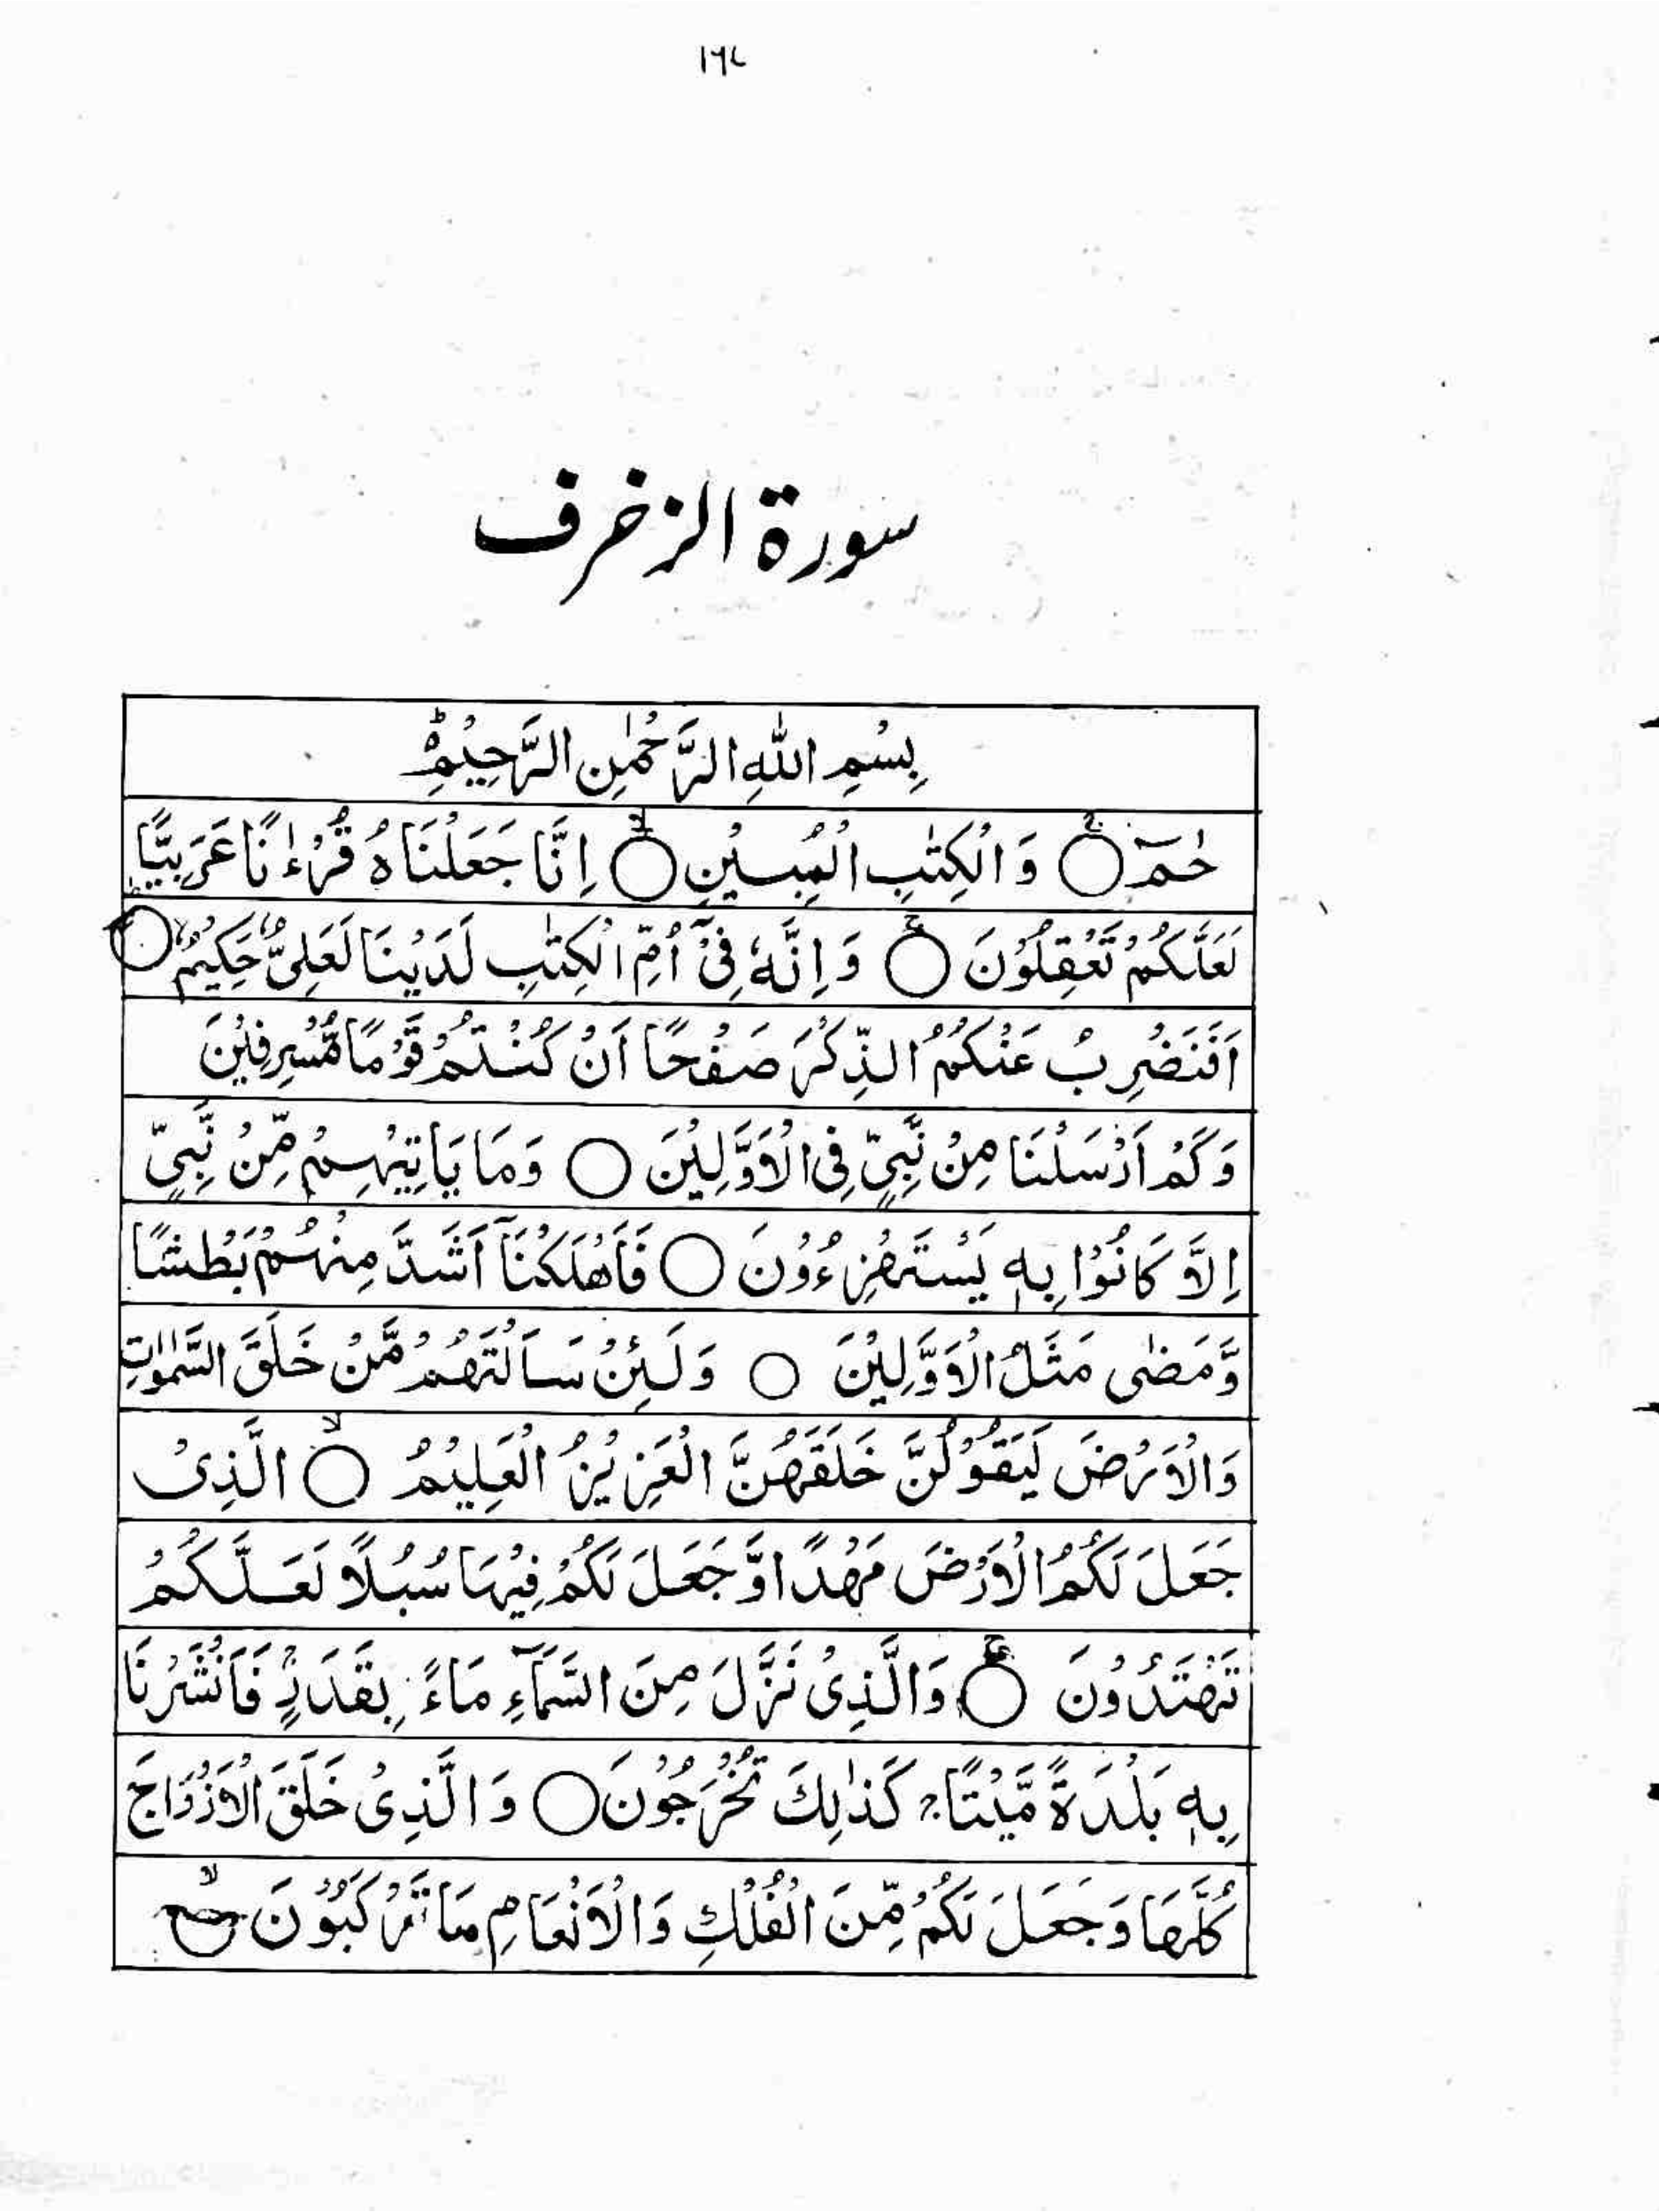 ۱۶۷
سورة الزخرف
بِسْمِ اللّٰهِ الرَّحْمٰنِ الرَّحِيْمِ ؕ
حٰمٓ ۚ○ وَالْكِتٰبِ الْمُبِيْنِ ۙ○ اِنَّا جَعَلْنَاهُ قُرْءٰنًا عَرَبِيًّا
لَعَلَّكُمْ تَعْقِلُوْنَ ۚ○ وَاِنَّهٗ فِيْٓ اُمِّ الْكِتٰبِ لَدَيْنَا لَعَلِيٌّ حَكِيْمٌ ۙ○
اَفَنَضْرِبُ عَنْكُمُ الذِّكْرَ صَفْحًا اَنْ كُنْتُمْ قَوْمًا مُّسْرِفِيْنَ
وَكَمْ اَرْسَلْنَا مِنْ نَّبِيٍّ فِى الْاَوَّلِيْنَ ○ وَمَا يَاتِيْهِمْ مِّنْ نَّبِيٍّ
اِلَّا كَانُوْا بِهٖ يَسْتَهْزِءُوْنَ ○ فَاَهْلَكْنَآ اَشَدَّ مِنْهُمْ بَطْشًا
وَّمَضٰى مَثَلُ الْاَوَّلِيْنَ ○ وَلَئِنْ سَاَلْتَهُمْ مَّنْ خَلَقَ السَّمٰوٰتِ
وَالْاَرْضَ لَيَقُوْلُنَّ خَلَقَهُنَّ الْعَزِيْزُ الْعَلِيْمُ ۙ○ الَّذِىْ
جَعَلَ لَكُمُ الْاَرْضَ مَهْدًا وَّجَعَلَ لَكُمْ فِيْهَا سُبُلًا لَعَلَّكُمْ
تَهْتَدُوْنَ ۚ○ وَالَّذِىْ نَزَّلَ مِنَ السَّمَآءِ مَاءً بِقَدَرٍ فَاَنْشَرْنَا
بِهٖ بَلْدَةً مَّيْتًا ۚ كَذٰلِكَ تُخْرَجُوْنَ ○ وَالَّذِىْ خَلَقَ الْاَزْوَاجَ
كُلَّهَا وَجَعَلَ لَكُمْ مِّنَ الْفُلْكِ وَالْاَنْعَامِ مَا تَرْكَبُوْنَ ۙ○